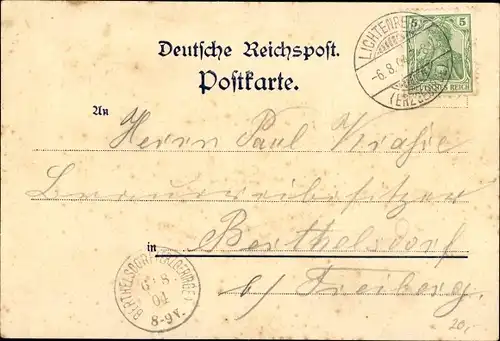 Deutsche Reichspost.
Postkarte.
5 5
LICHTENBE
-6.8.04
(ERZGEB
REICH
An
Herrn Paul
Brauereibesitzer
in Berthelsdorf
b/ Freiberg.
BERTHELSDORF (ERZGEBIRGE)
6 8
04
8-9V.
20,-